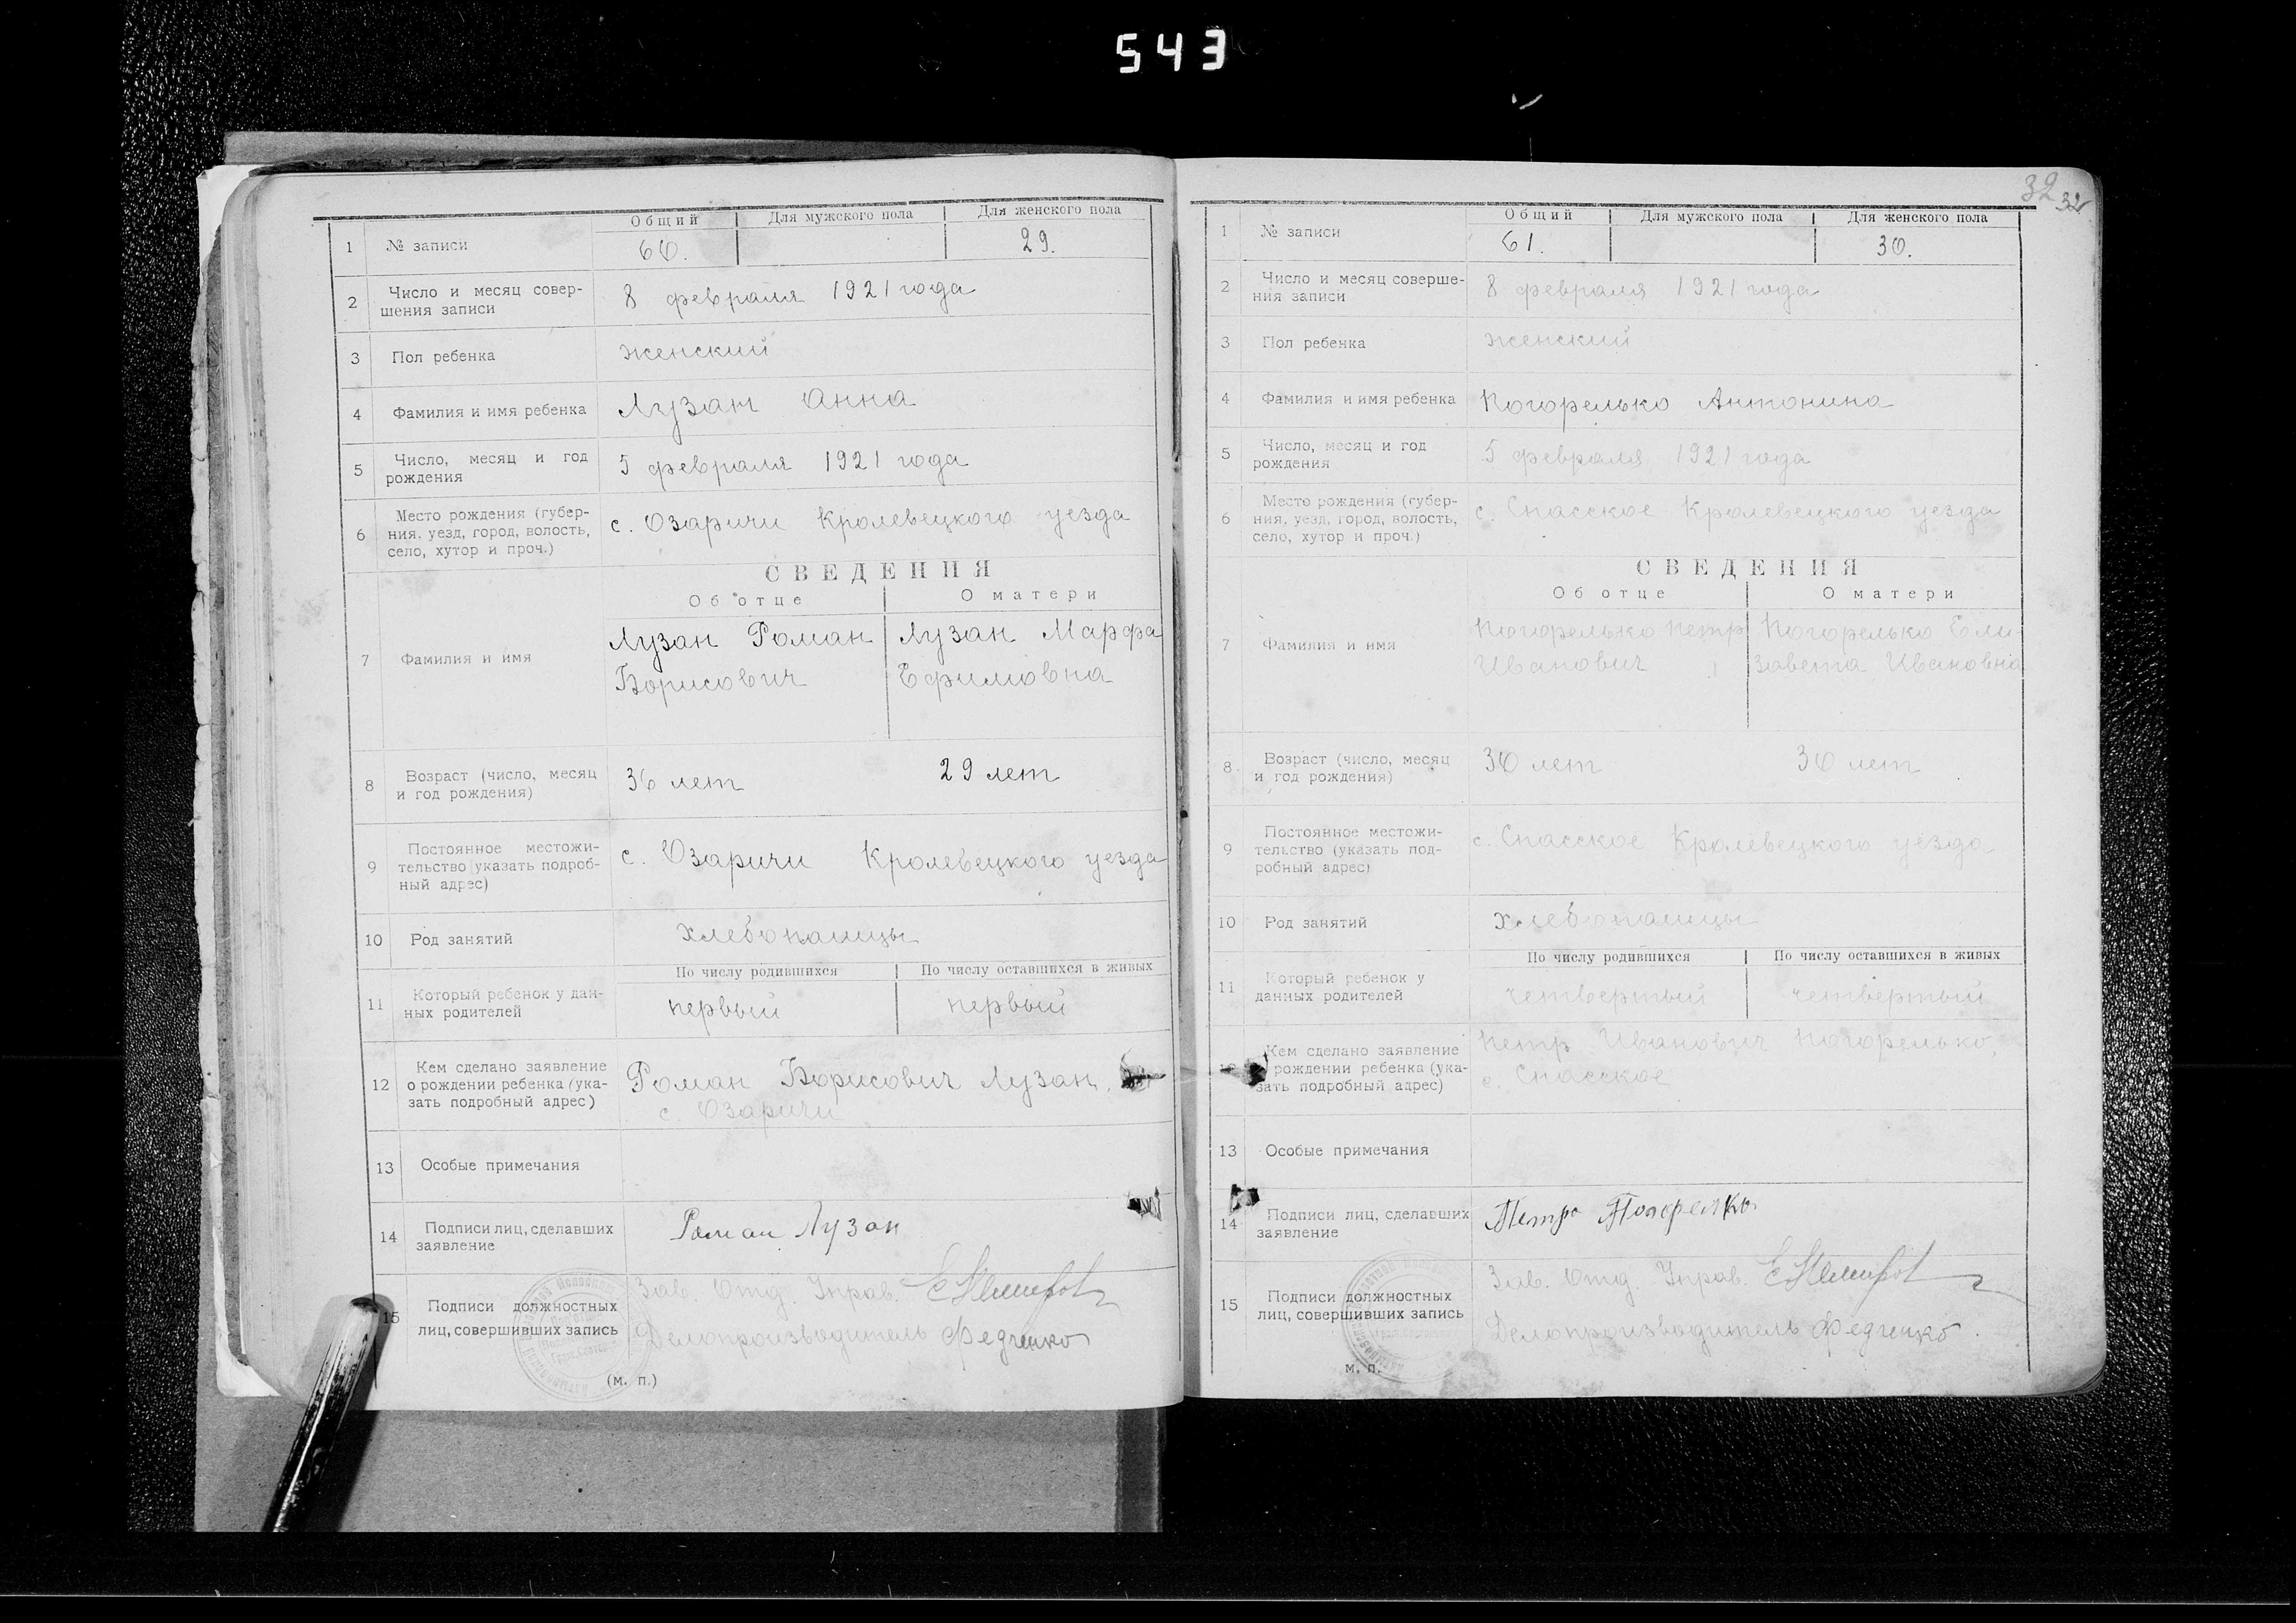 543
Общий Для мужского пола Для женского пола
1 № записи 60. 29.
2 Число и месяц совер-
шения записи 8 февраля 1921 года
3 Пол ребенка женский
4 Фамилия и имя ребенка Лузан Анна
5 Число, месяц и год
рождения 5 февраля 1921 года
6 Место рождения (губер-
ния, уезд, город, волость,
село, хутор и проч.) с. Озаричи Кролевецкого уезда
СВЕДЕНИЯ
Об отце О матери
7 Фамилия и имя
Лузан Роман Лузан Марфа
Борисович Ефимовна
8 Возраст (число, месяц
и год рождения) 36 лет 29 лет
9 Постоянное местожи-
тельство (указать подроб-
ный адрес) с. Озаричи Кролевецкого уезда
10 Род занятий хлебопашцы
По числу родившихся По числу оставшихся в живых
11 Который ребенок у дан-
ных родителей первый первый
12 Кем сделано заявление
о рождении ребенка (ука-
зать подробный адрес)
Роман Борисович Лузан.
с. Озаричи
13 Особые примечания
14 Подписи лиц, сделавших
заявление Роман Лузан
15 Подписи должностных
лиц, совершивших запись
Зав. Отд. Управ.
Делопроизводитель Федченко
(м. п.)
32 32
Общий Для мужского пола Для женского пола
1 № записи 61. 30.
2 Число и месяц соверше-
ния записи 8 февраля 1921 года
3 Пол ребенка женский
4 Фамилия и имя ребенка Погорелько Антонина
5 Число, месяц и год
рождения 5 февраля 1921 года
6 Место рождения (губер-
ния, уезд, город, волость,
село, хутор и проч.) с. Спасское Кролевецкого уезда
СВЕДЕНИЯ
Об отце О матери
7 Фамилия и имя
Погорелько Петр Погорелько Ели-
Иванович завета Ивановна
8 Возраст (число, месяц
и год рождения) 30 лет 30 лет
9 Постоянное местожи-
тельство (указать под-
робный адрес) с. Спасское Кролевецкого уезда
10 Род занятий хлебопашцы
По числу родившихся По числу оставшихся в живых
11 Который ребенок у
данных родителей четвертый четвертый
Кем сделано заявление
рождении ребенка (ука-
зать подробный адрес)
Петр Иванович Погорелько,
с. Спасское
13 Особые примечания
14 Подписи лиц, сделавших
заявление Петро Погорелко
15 Подписи должностных
лиц, совершивших запись
Зав. Отд. Управ.
Делопроизводитель Федченко.
м. п.